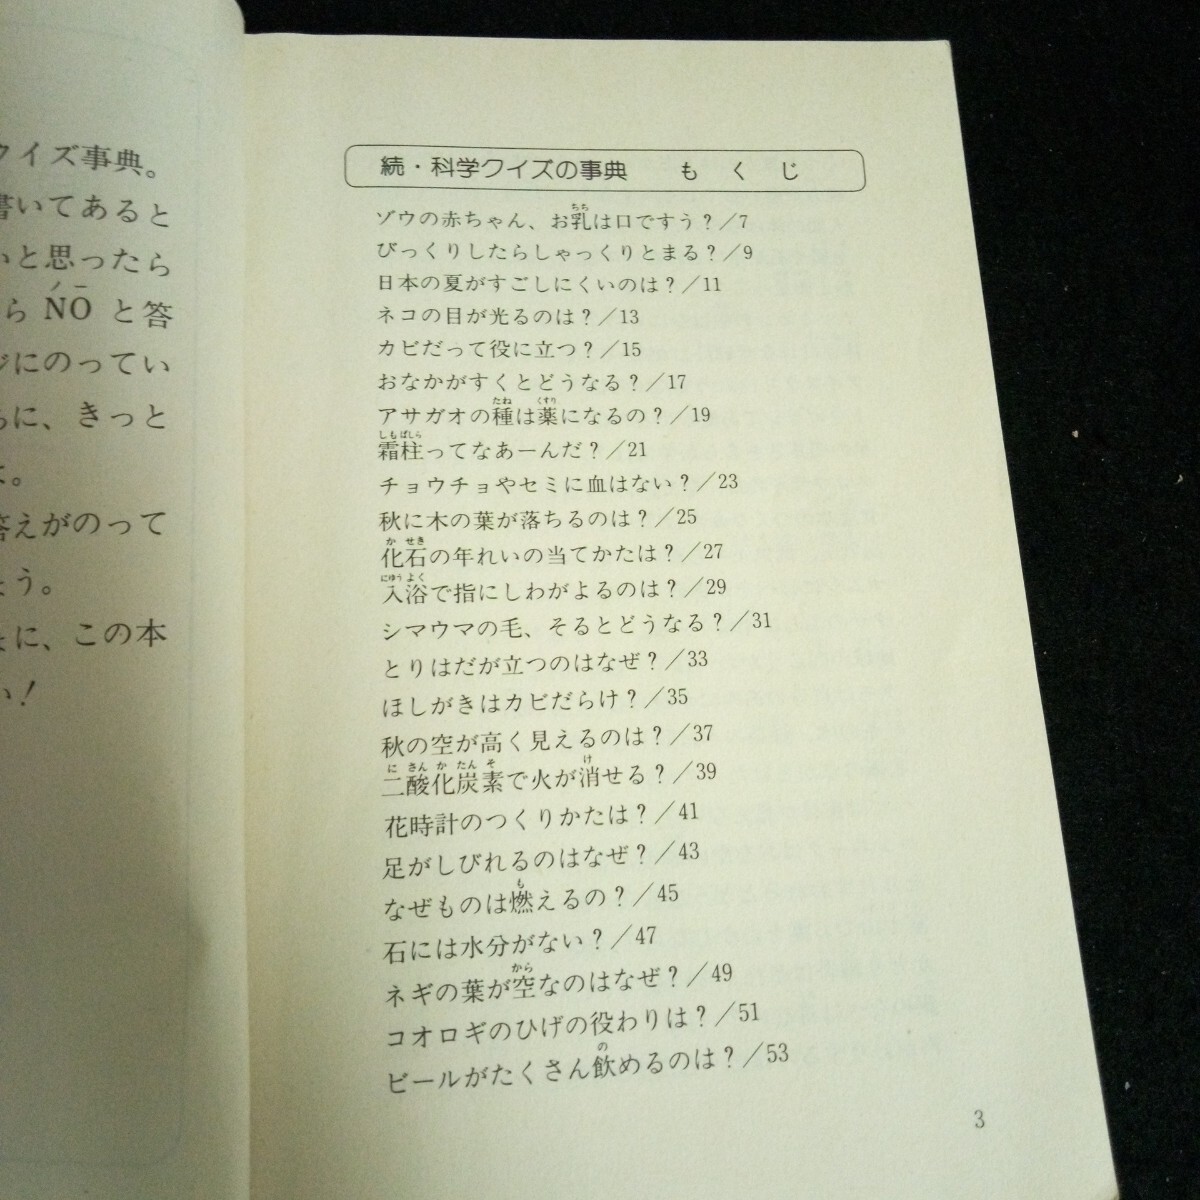 クイズ事典。
書いてあると
いと思ったら
らNOと答
ジにのってい
らに、きっと
よ。
答えがのって
ょう。
ょに、この本
い！
続・科学クイズの事典　もくじ
ゾウの赤ちゃん、お乳は口ですう？／7
びっくりしたらしゃっくりとまる？／9
日本の夏がすごしにくいのは？／11
ネコの目が光るのは？／13
カビだって役に立つ？／15
おなかがすくとどうなる？／17
アサガオの種は薬になるの？／19
霜柱ってなあーんだ？／21
チョウチョやセミに血はない？／23
秋に木の葉が落ちるのは？／25
化石の年れいの当てかたは？／27
入浴で指にしわがよるのは？／29
シマウマの毛、そるとどうなる？／31
とりはだが立つのはなぜ？／33
ほしがきはカビだらけ？／35
秋の空が高く見えるのは？／37
二酸化炭素で火が消せる？／39
花時計のつくりかたは？／41
足がしびれるのはなぜ？／43
なぜものは燃えるの？／45
石には水分がない？／47
ネギの葉が空なのはなぜ？／49
コオロギのひげの役わりは？／51
ビールがたくさん飲めるのは？／53
3